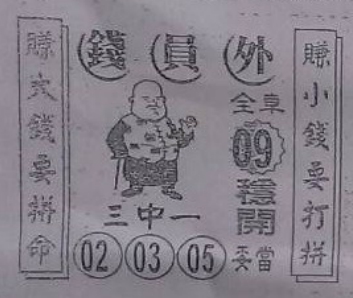 錢員外
賺大錢要拼命
賺小錢要打拼
全車
09
穩開
三中一
02 03 05